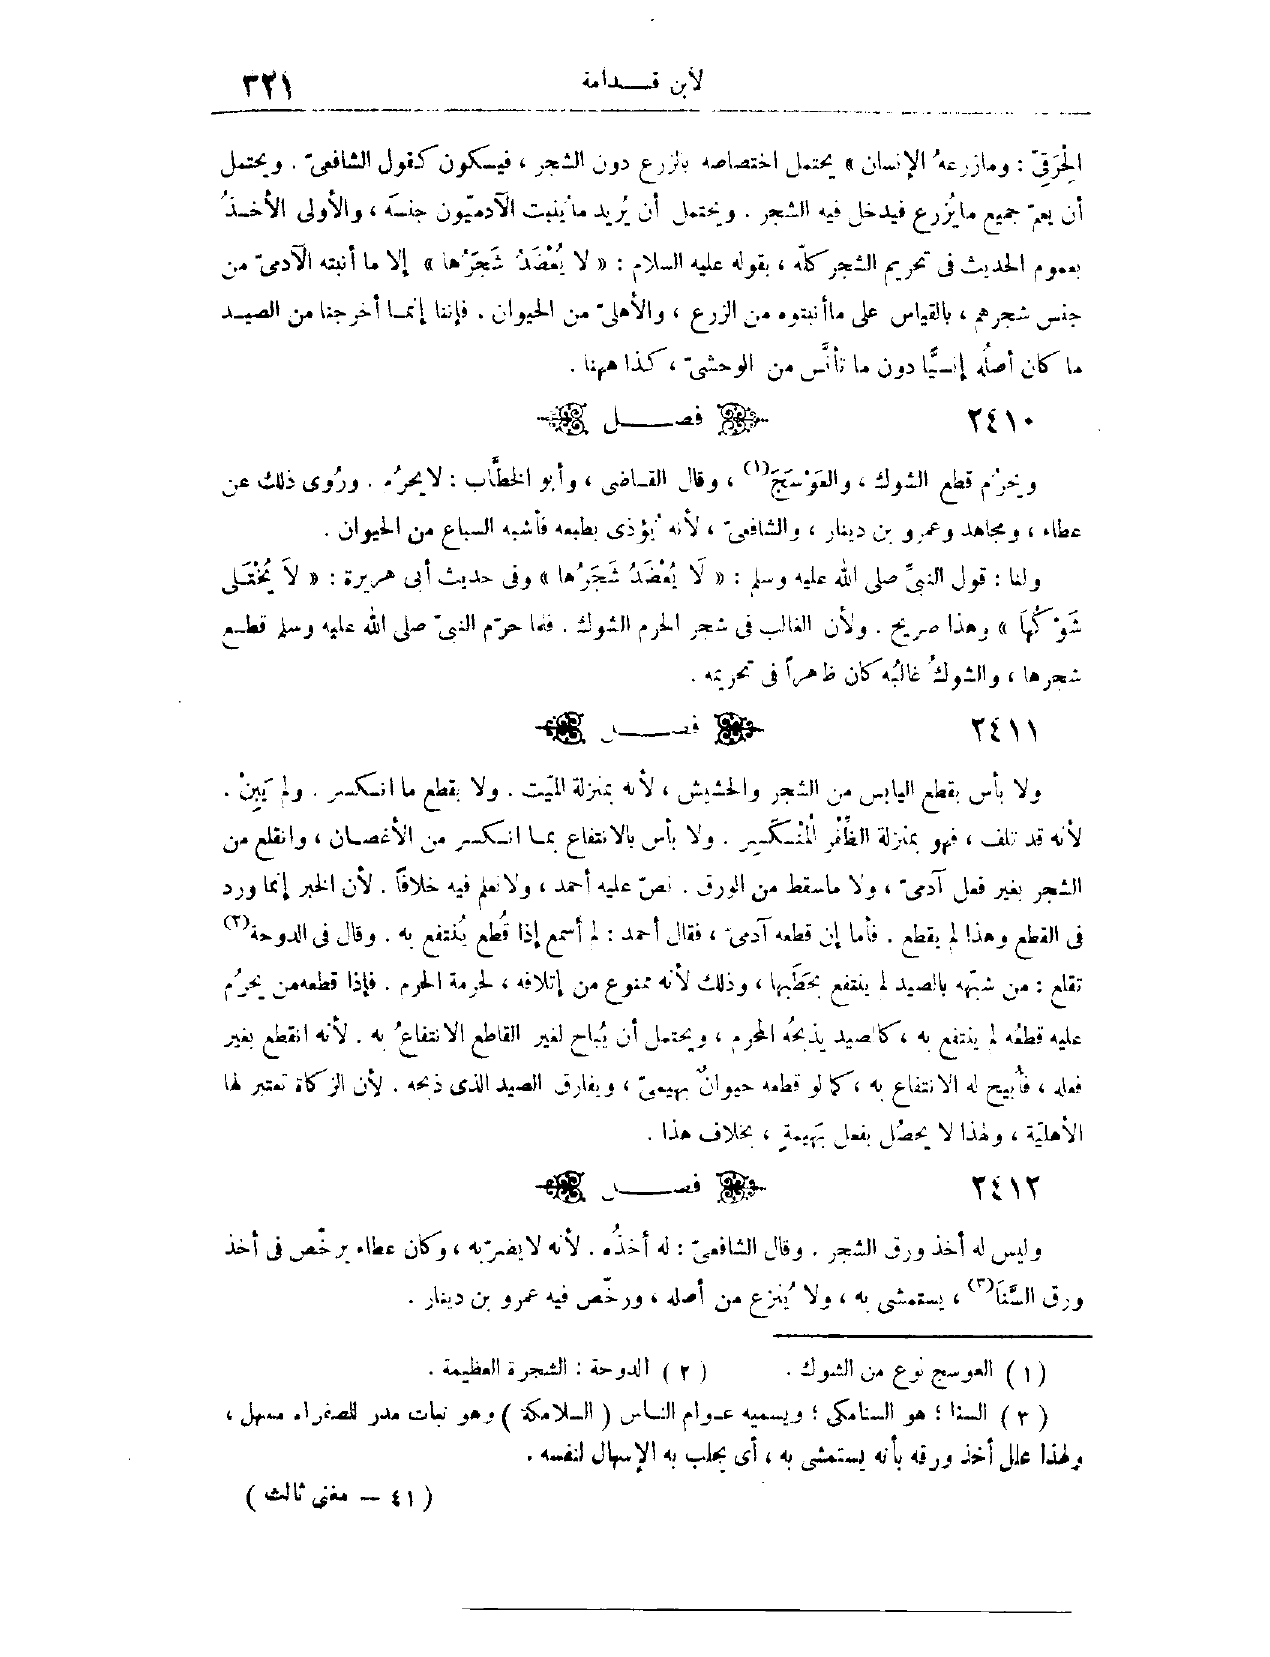 لابن قـــدامة ٣٢١
الِخْرَقِيّ : ومازرعهُ الإنسان » يحتمل اختصاصه بالزرع دون الشجر ، فيسكون كقول الشافعىّ . ويحتمل
أن يعمّ جميع مايُزرع فيدخل فيه الشجر . ويحتمل أن يُريد مايُنبت الآدميّون جنسَه ، والأولى الأخـذُ
بعموم الحديث فى تحريم الشجر كلّه ، بقوله عليه السلام : « لا يُعْضَدُ شَجَرُها » إلا ما أنبته الآدمىّ من
جنس شجرهم ، بالقياس على ماأنبتوه من الزرع ، والأهلىّ من الحيوان . فإننا إنمـا أخرجنا من الصيـد
ما كان أصلُه إنسيًّا دون ما تأنَّس من الوحشىّ ، كذا ههنا .
٢٤١٠ فصـــل
ويحرُم قطع الشوك ، والعَوْسَجَ (١) ، وقال القـاضى ، وأبو الخطَّاب : لايحرُم . ورُوى ذلك عن
عطاء ، ومجاهد وعمرو بن دينار ، والشافعىّ ، لأنه يُؤذى بطبعه فأشبه السباع من الحيوان .
ولنا : قول النبىِّ صلى الله عليه وسلم : « لَا يُعْضَدُ شَجَرُها » وفى حديث أبى هريرة : « لاَ يُخْتَلَى
شَوْكُهَا » وهذا صريح . ولأن الغالب فى شجر الحرم الشوك . فلما حرّم النبىّ صلى الله عليه وسلم قطـع
شجرها ، والشوكُ غالبُه كان ظاهراً فى تحريمه .
٢٤١١ فصـــل
ولا بأس بقطع اليابس من الشجر والحشيش ، لأنه بمنزلة الميّت . ولا بقطع ما انـكسر . ولم يَبِنْ .
لأنه قد تلف ، فهو بمنزلة الظُّفْر الْمُنْـكَسِرِ . ولا بأس بالانتفاع بمـا انـكسر من الأغصـان ، وانقلع من
الشجر بغير فعل آدمىّ ، ولا ماسقط من الورق . نصّ عليه أحمد ، ولانعلم فيه خلافاً . لأن الخبر إنما ورد
فى القطع وهذا لم يقطع . فأما إن قطعه آدمىّ ، فقال أحمد : لم أسمع إذا قُطع يُنتفع به . وقال فى الدوحة (٢)
تقلع : من شبّهه بالصيد لم ينتفع بحَطَبها ، وذلك لأنه ممنوع من إتلافه ، لحرمة الحرم . فإذا قطعه من يحرُم
عليه قطعُه لم ينتفع به ، كالصيد يذبحُه المحرم ، ويحتمل أن يُباح لغير القاطع الانتفاعُ به . لأنه انقطع بغير
فعله ، فأُبيح له الانتفاع به ، كما لو قطعه حيوانٌ بهيمىّ ، ويفارق الصيد الذى ذبحه . لأن الزكاة تعتبر لها
الأهليّة ، ولهذا لا يحصُل بفعل بَهِيمةٍ ، بخلاف هذا .
٢٤١٢ فصـــل
وليس له أخذ ورق الشجر . وقال الشافعىّ : له أخذُه . لأنه لايضرّبه ، وكان عطاء يرخّص فى أخذ
ورق السَّنَا (٣) ، يستمشى به ، ولا يُنزع من أصله ، ورخّص فيه عمرو بن دينار .
(١) العوسج نوع من الشوك . (٢) الدوحة : الشجرة العظيمة .
(٣) السنا ؛ هو السنامكى ؛ ويسميه عـوام النـاس ( السلامكة ) وهو نبات مدر للصفراء مسهل ،
ولهذا علل أخذ ورقه بأنه يستمشى به ، أى يجلب به الإسهال لنفسه .
( ٤١ — مغنى ثالث )